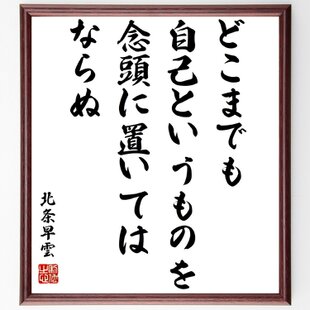 どこまでも
自己というものを
念頭に置いては
ならぬ
北条早雲